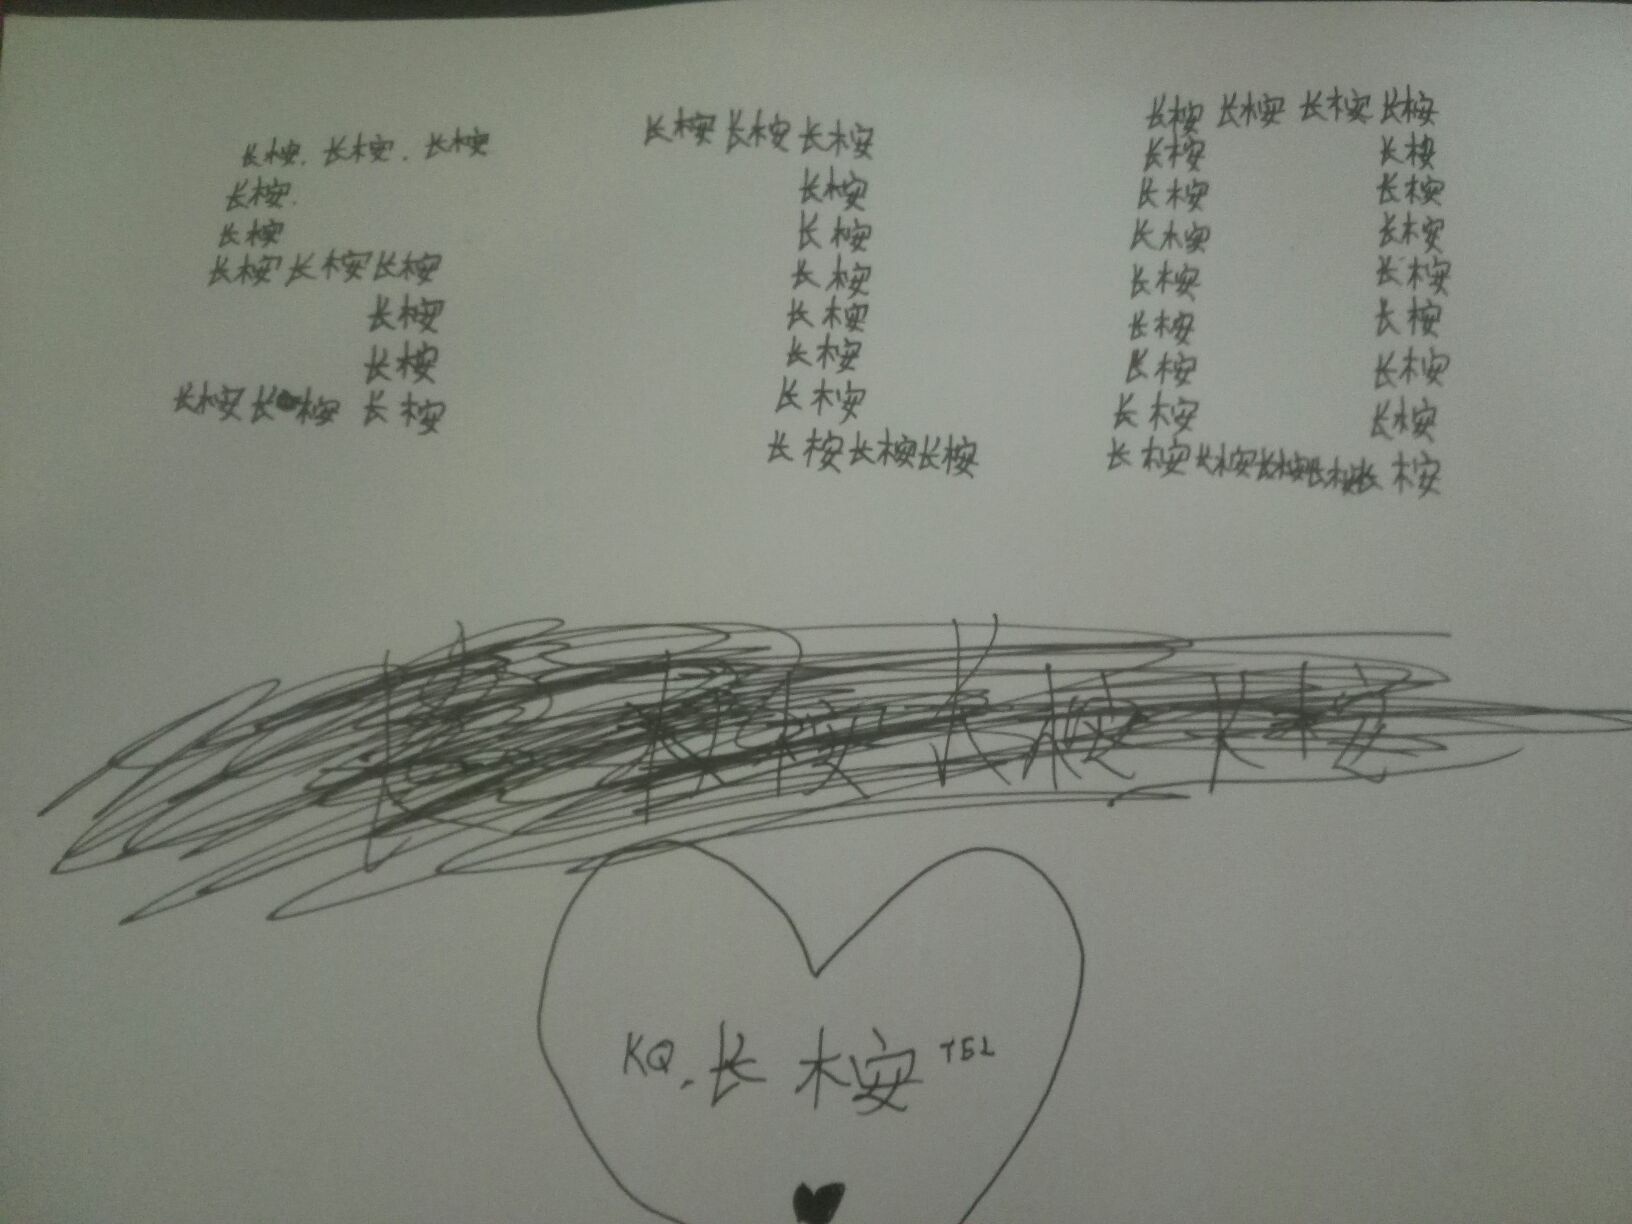 长桉.长桉.长桉
长桉.
长桉
长桉长桉长桉
长桉
长桉
长桉长桉长桉
长桉长桉长桉
长桉
长桉
长桉
长桉
长桉
长桉
长桉长桉长桉
长桉 长桉 长桉 长桉
长桉 长桉
长桉 长桉
长桉 长桉
长桉 长桉
长桉 长桉
长桉 长桉
长桉 长桉
长桉长桉长桉长桉长桉
KQ.长桉 TEL